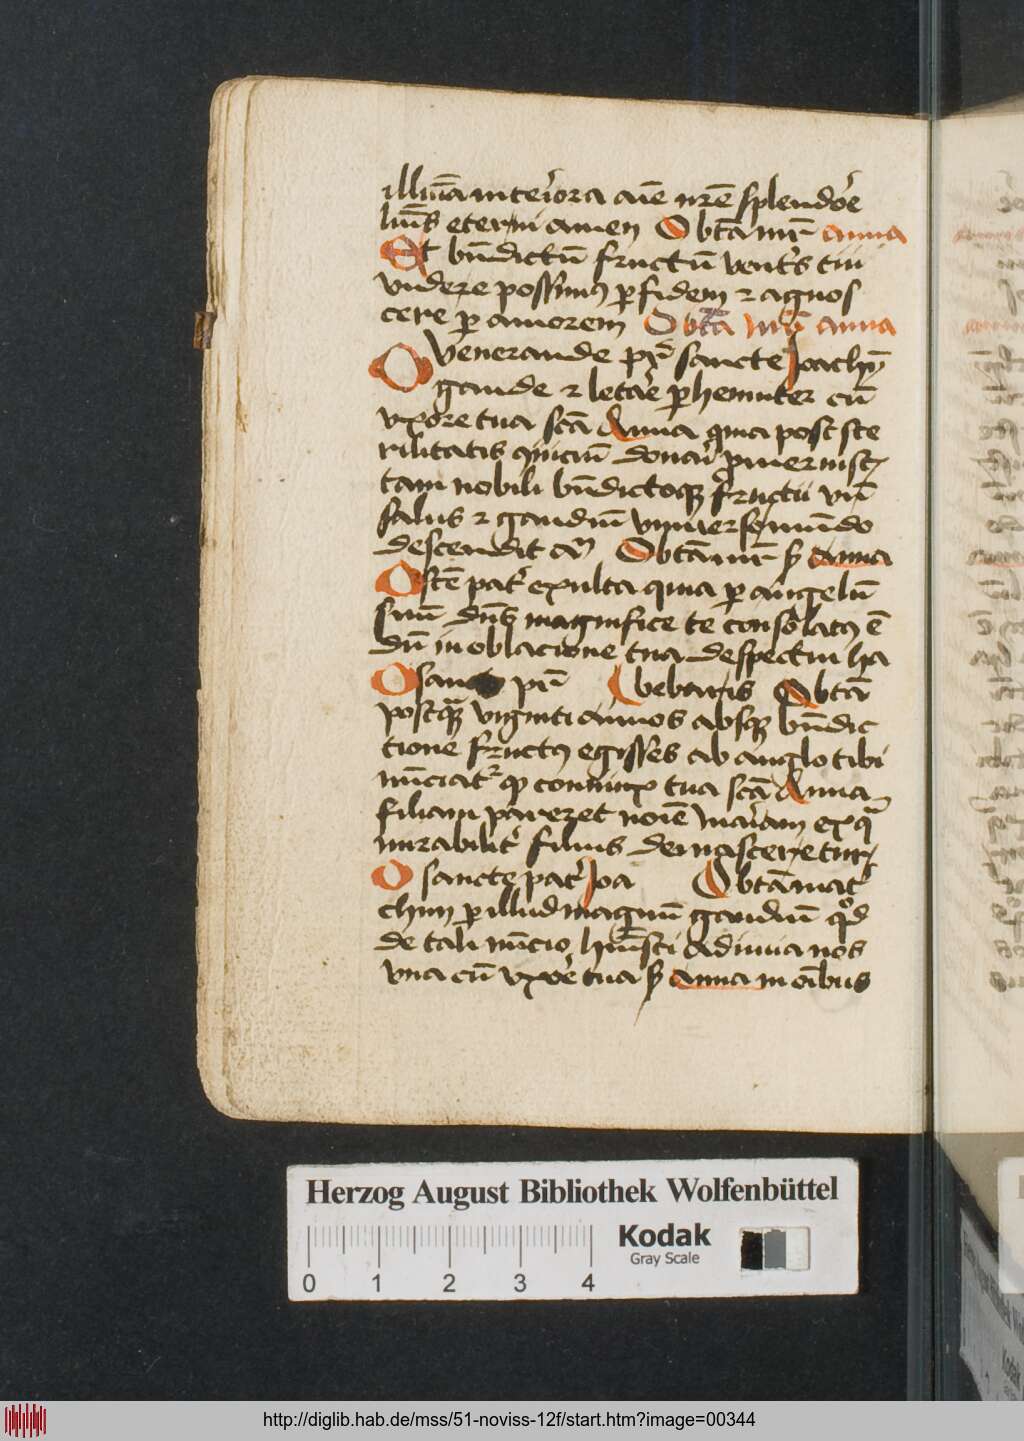 illūīa interiora aīe nrē splendōe
lūīs eterni amen Obtā mr̄ anna
Et bn̄dictū fructū ventris tui
videre possimꝰ ꝑ fidem ⁊ agnos
cere ꝑ amorem Obtā nr̄ anna
O venerande pr̄ sancte Joachȳ
gaude ⁊ letare ꝑhenniter cū
vxore tua scā Anna quia post ste
rilitatis donari ꝓmeruisti
tam nobili bn̄dictoqꝫ fructu vn̄
salus ⁊ gaudiū vniuerso mūdo
descendit Obtā mr̄ s anna
O scē pater exulta quia ꝑ angelū
suū dn̄s magnifice te consolatꝰ ē
dū in oblacione tua despectui ha
O sancte pr̄ bebaris Obtā
postꝙ̄ viginti annos absqꝫ bn̄dic
tione fructꝰ egisses ab anglo tibi
nūciatr ꝙ coniunx tua scā Anna
filiam pareret noīe mariam ex qua
mirabiliter filius dei nasceretur
O sancte pater Joa Obtā mat
chim ꝑ illud magnū gaudiū qd
de tali nūcio hūisti adiuua nos
vna cū vxore tua s anna in oībus
Herzog August Bibliothek Wolfenbüttel
Kodak
Gray Scale
0 1 2 3 4
http://diglib.hab.de/mss/51-noviss-12f/start.htm?image=00344